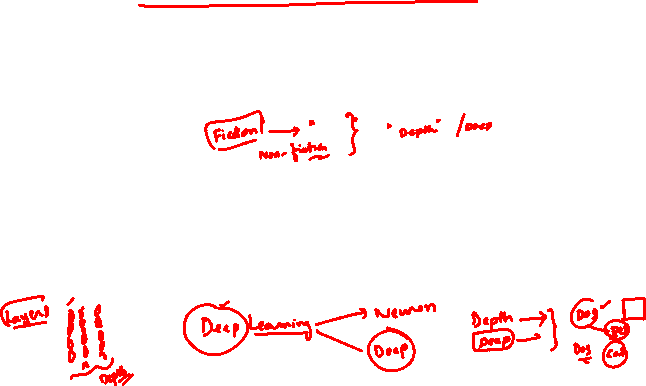 Fiction → "
Non-fiction
"Depth" / Deep
Layers
Depth
Deep Learning
Neuron
Deep
Depth
Deep
Dog
Dog
Cat